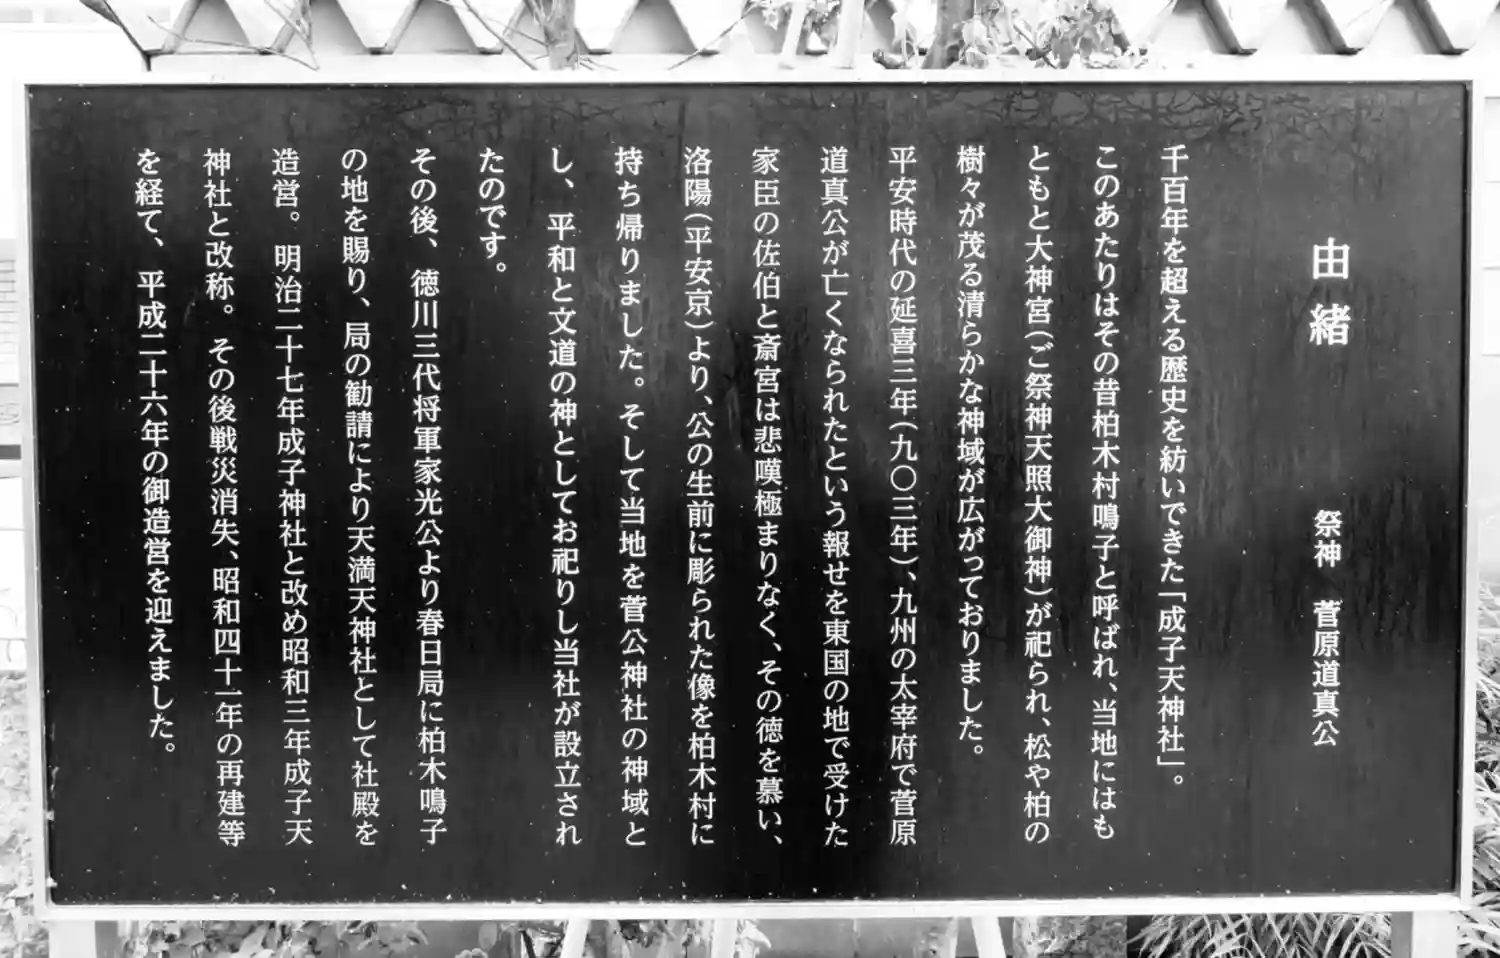 由緒
祭神 菅原道真公
千百年を超える歴史を紡いできた「成子天神社」。
このあたりはその昔柏木村鳴子と呼ばれ、当地にはも
ともと大神宮(ご祭神天照大御神)が祀られ、松や柏の
樹々が茂る清らかな神域が広がっておりました。
平安時代の延喜三年(九〇三年)、九州の太宰府で菅原
道真公が亡くなられたという報せを東国の地で受けた
家臣の佐伯と斎宮は悲嘆極まりなく、その徳を慕い、
洛陽(平安京)より、公の生前に彫られた像を柏木村に
持ち帰りました。そして当地を菅公神社の神域と
し、平和と文道の神としてお祀りし当社が設立され
たのです。
その後、徳川三代将軍家光公より春日局に柏木鳴子
の地を賜り、局の勧請により天満天神社として社殿を
造営。明治二十七年成子神社と改め昭和三年成子天
神社と改称。その後戦災消失、昭和四十一年の再建等
を経て、平成二十六年の御造営を迎えました。